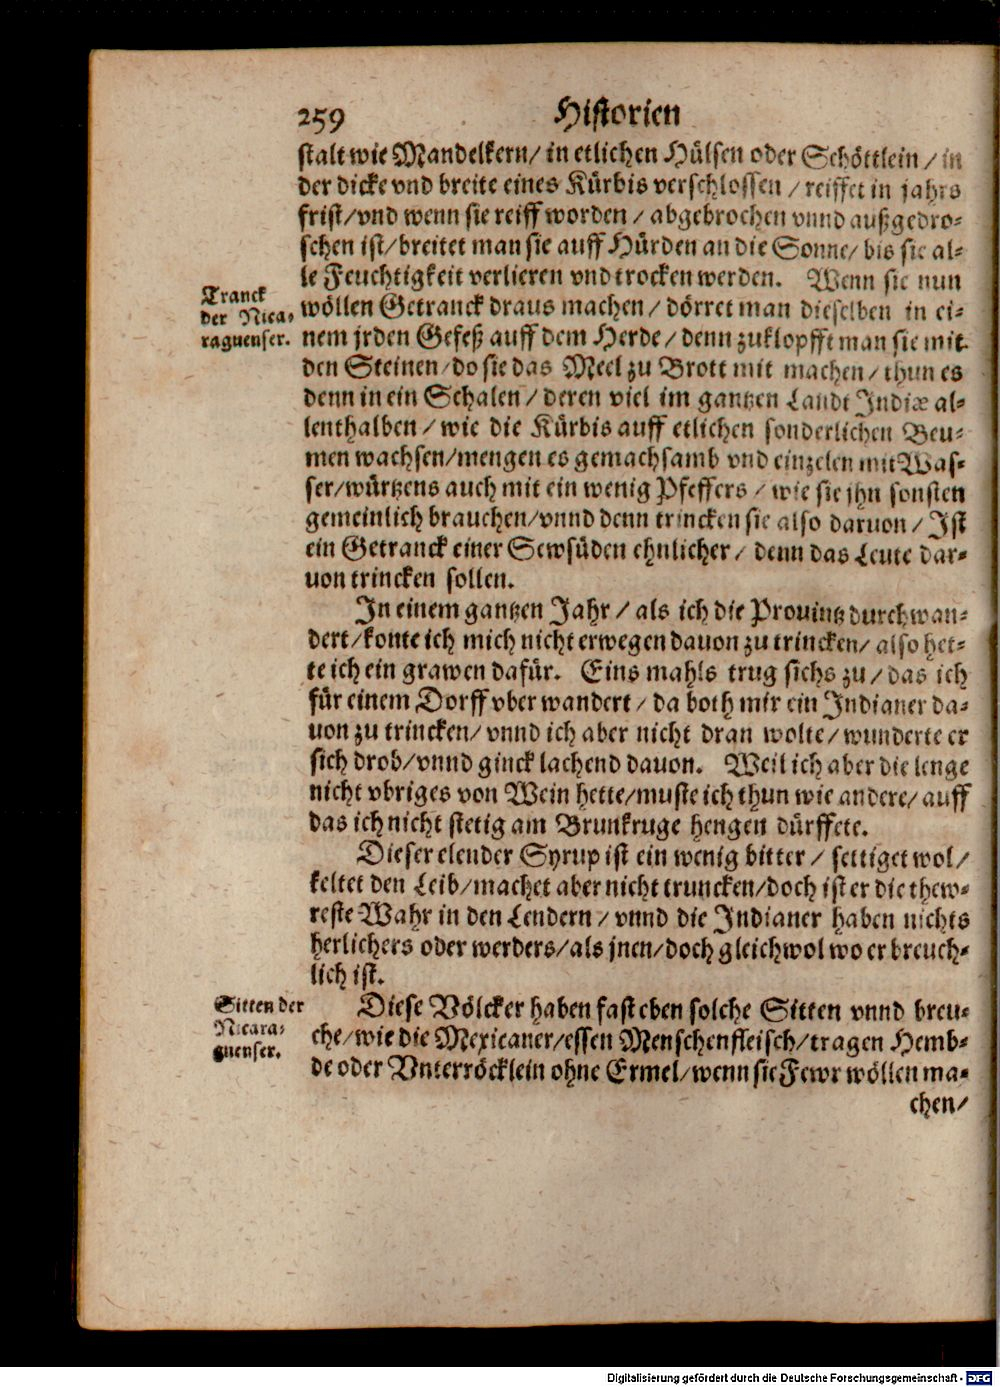 259 Historien
stalt wie Mandelkern/ in etlichen Hülsen oder Schöttlein / in
der dicke vnd breite eines Kürbis verschlossen / reiffet in jahrs
frist/vnd wenn sie reiff worden / abgebrochen vnnd außgedro-
schen ist/breitet man sie auff Hürden an die Sonne/ bis sie al-
le Feuchtigkeit verlieren vnd trocken werden. Wenn sie nun
Tranck
der Nica-
raguenser.
wöllen Getranck draus machen / dörret man dieselben in ei-
nem jrden Gefeß auff dem Herde / denn zuklopfft man sie mit
den Steinen / do sie das Meel zu Brott mit machen / thun es
denn in ein Schalen / deren viel im gantzen Landt Indiæ al-
lenthalben / wie die Kürbis auff etlichen sonderlichen Beu-
men wachsen/mengen es gemachsamb vnd einzelen mit Was-
ser/würtzens auch mit ein wenig Pfeffers / wie sie jhn sonsten
gemeinlich brauchen/vnnd denn trincken sie also daruon / Ist
ein Getranck einer Sewsüden ehnlicher / denn das Leute dar-
uon trincken sollen.
In einem gantzen Jahr / als ich die Prouintz durchwan-
dert/konte ich mich nicht erwegen dauon zu trincken/ also het-
te ich ein grawen dafür. Eins mahls trug sichs zu / das ich
für einem Dorff vber wandert / da both mir ein Indianer da-
uon zu trincken/ vnnd ich aber nicht dran wolte/ wunderte er
sich drob/vnnd ginck lachend dauon. Weil ich aber die lenge
nicht vbriges von Wein hette/muste ich thun wie andere/ auff
das ich nicht stetig am Brunkruge hengen dürffete.
Dieser elender Syrup ist ein wenig bitter / settiget wol/
keltet den Leib/machet aber nicht truncken/doch ist er die thew-
reste Wahr in den Lendern / vnnd die Indianer haben nichts
herlichers oder werders/als jnen/doch gleichwol wo er breuch-
lich ist.
Sitten der
Nicara-
guenser.
Diese Völcker haben fast eben solche Sitten vnnd breu-
che/wie die Mexicaner/essen Menschenfleisch/tragen Hemb-
de oder Vnterröcklein ohne Ermel/wenn sie Fewr wöllen ma-
chen/
Digitalisierung gefördert durch die Deutsche Forschungsgemeinschaft - DFG